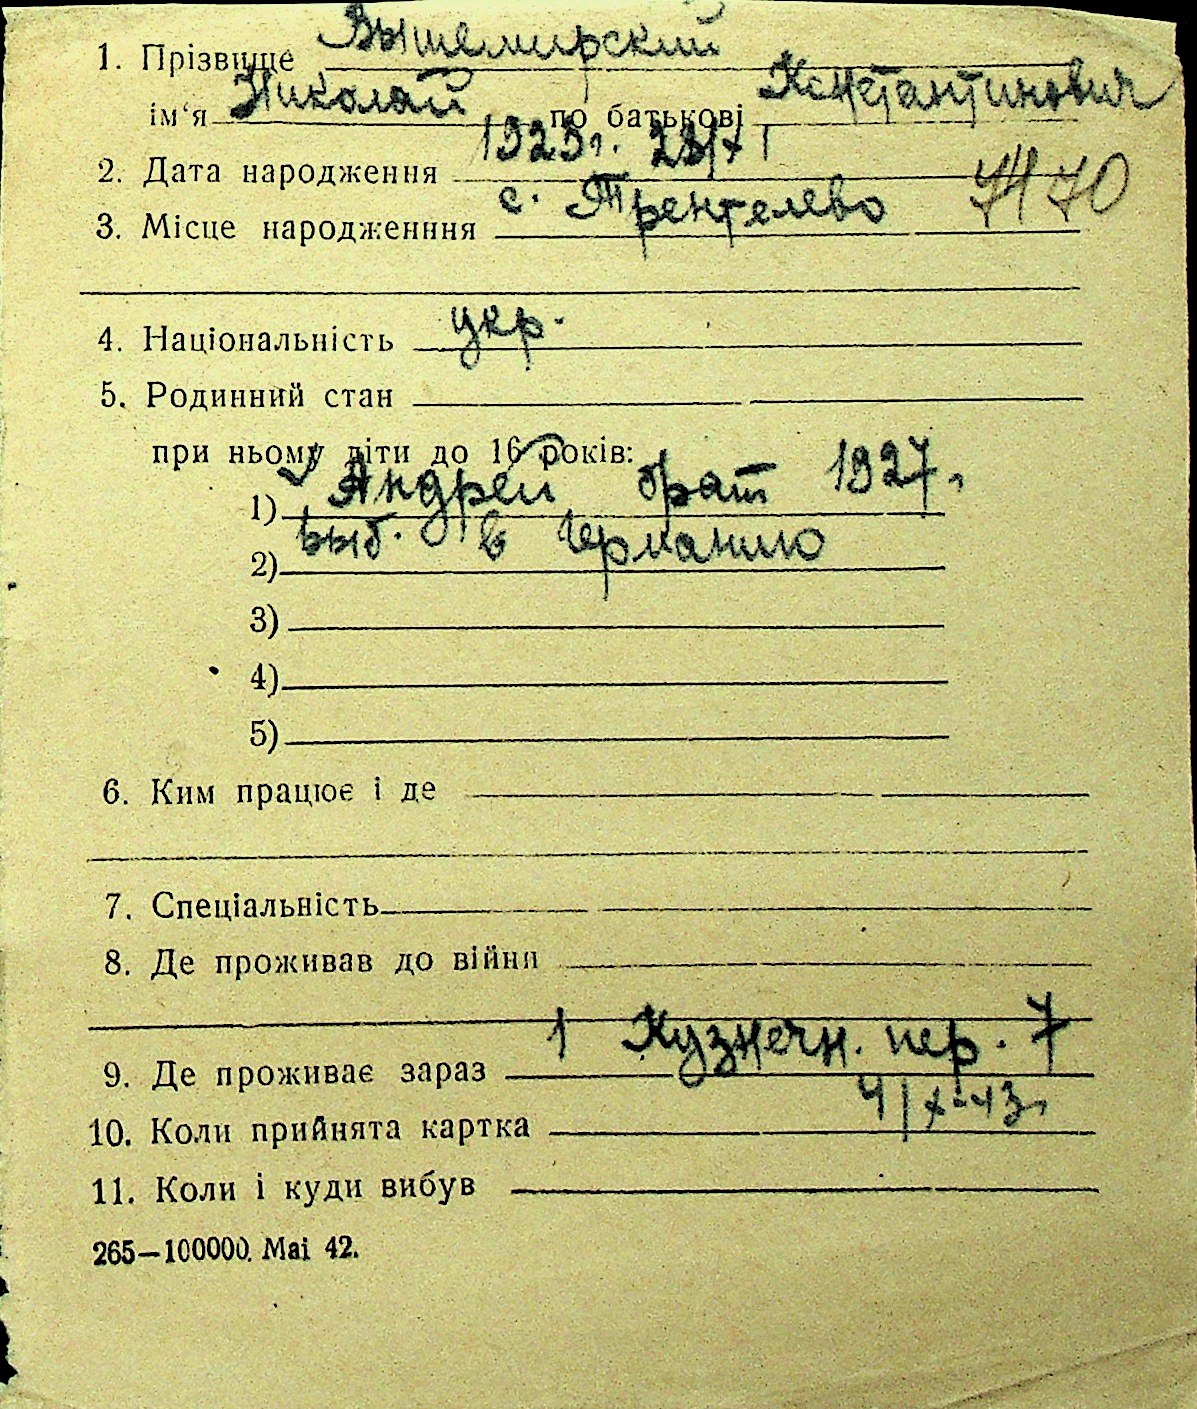 1. Прізвище Вышемирский
ім‘я Николай по батькові Константинович
2. Дата народження 1923 г.
3. Місце народженння с. Трентелево
4. Національність укр.
5. Родинний стан
при ньому діти до 16 років:
1) Андрей брат 1927 г.
2) выб. в Германию
3)
4)
5)
6. Ким працює і де
7. Спеціальність
8. Де проживав до війни
9. Де проживає зараз 1 Кузнечн. пер. 7
10. Коли прийнята картка 4/X-43 г.
11. Коли і куди вибув
265—100000. Mai 42.